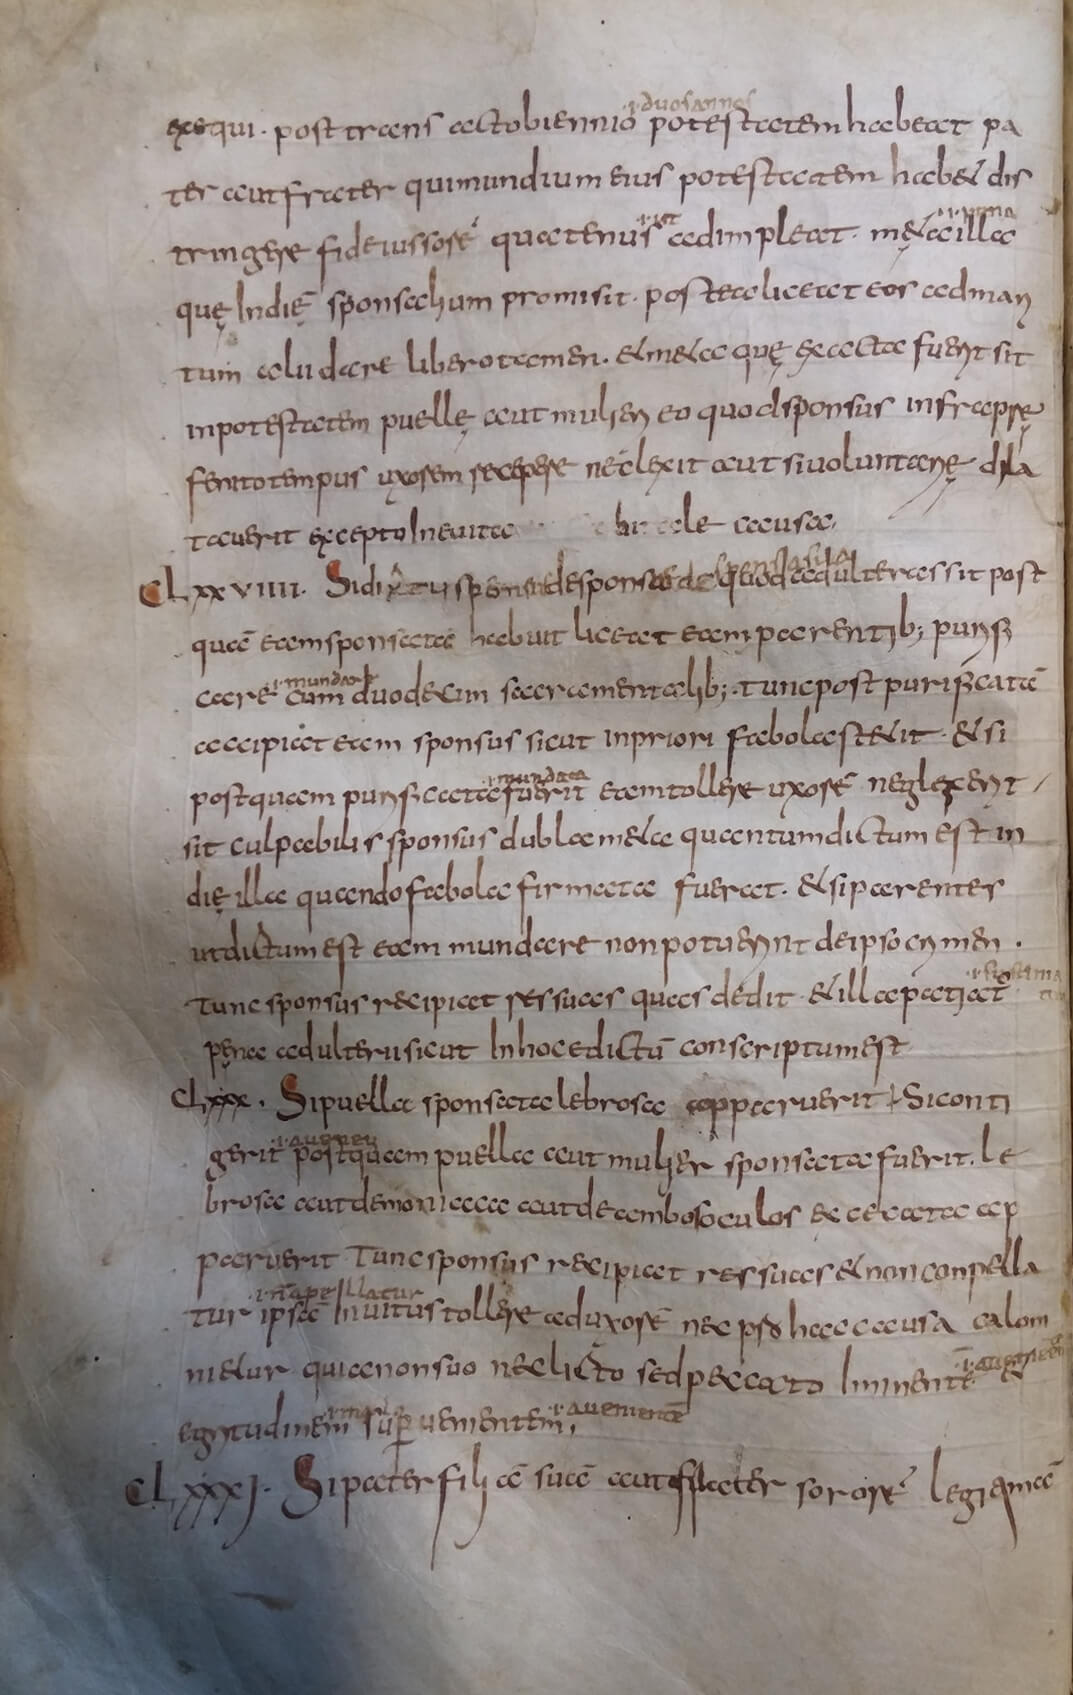 exequi. post transactobiennio potestatem habeat pa
ter aut frater qui mundium eius potestatem habet dis
tringere fideiussorē quatenus adimpleat. metā illa
quę In diē sponsalium promisit. postea liceat eos ad mari
tum aliI dare libero tamen. et meta quę exacta fuerit sit
in potestatem puellę aut mulieri eo quod sponsus infra prę
fenito tempus uxorem recepere neclexit aut si voluntarię dila
taverit excepto Inevita bi tale causa.
CLxxviiii. Si dixerit sponsus de sponsa sua quod adulterasset post
quā eam sponsatā habuit liceat eam parentib; purifi
care cum duodecim sacramentalib;. tunc post purificatā
accipiat eam sponsus sicut in priori fabola stetit. et si
postquam purificata fuerit eam tollere uxorē neglexerit
sit culpabilis sponsus dubla meta quantum dictum est in
dię illa quando fabola firmata fuerat. et si parentes
ut dictum est eam mundare non potuerint de ipso crimen.
tunc sponsus recipiat res suas quas dedit. et illa patiatr̄
pęna adulterii sicut In hoc edictū conscriptum est
CLxxx. Si puella sponsata lebrosa apparuerit. Si conti
gerit postquam puella aut mulier sponsata fuerit. le
brosa aut demoniaca aut de ambos oculos excecata ap
paruerit. Tunc sponsus recipiat res suas et non conpella
tur ipsā Invitus tollere ad uxorē nec pro hac causa calom
nietur quia non suo neclicto sed peccato Iminentē et
egritudinem supervenientem.
CLxxxI. Si pater filiā suā aut frater sororē legitimā